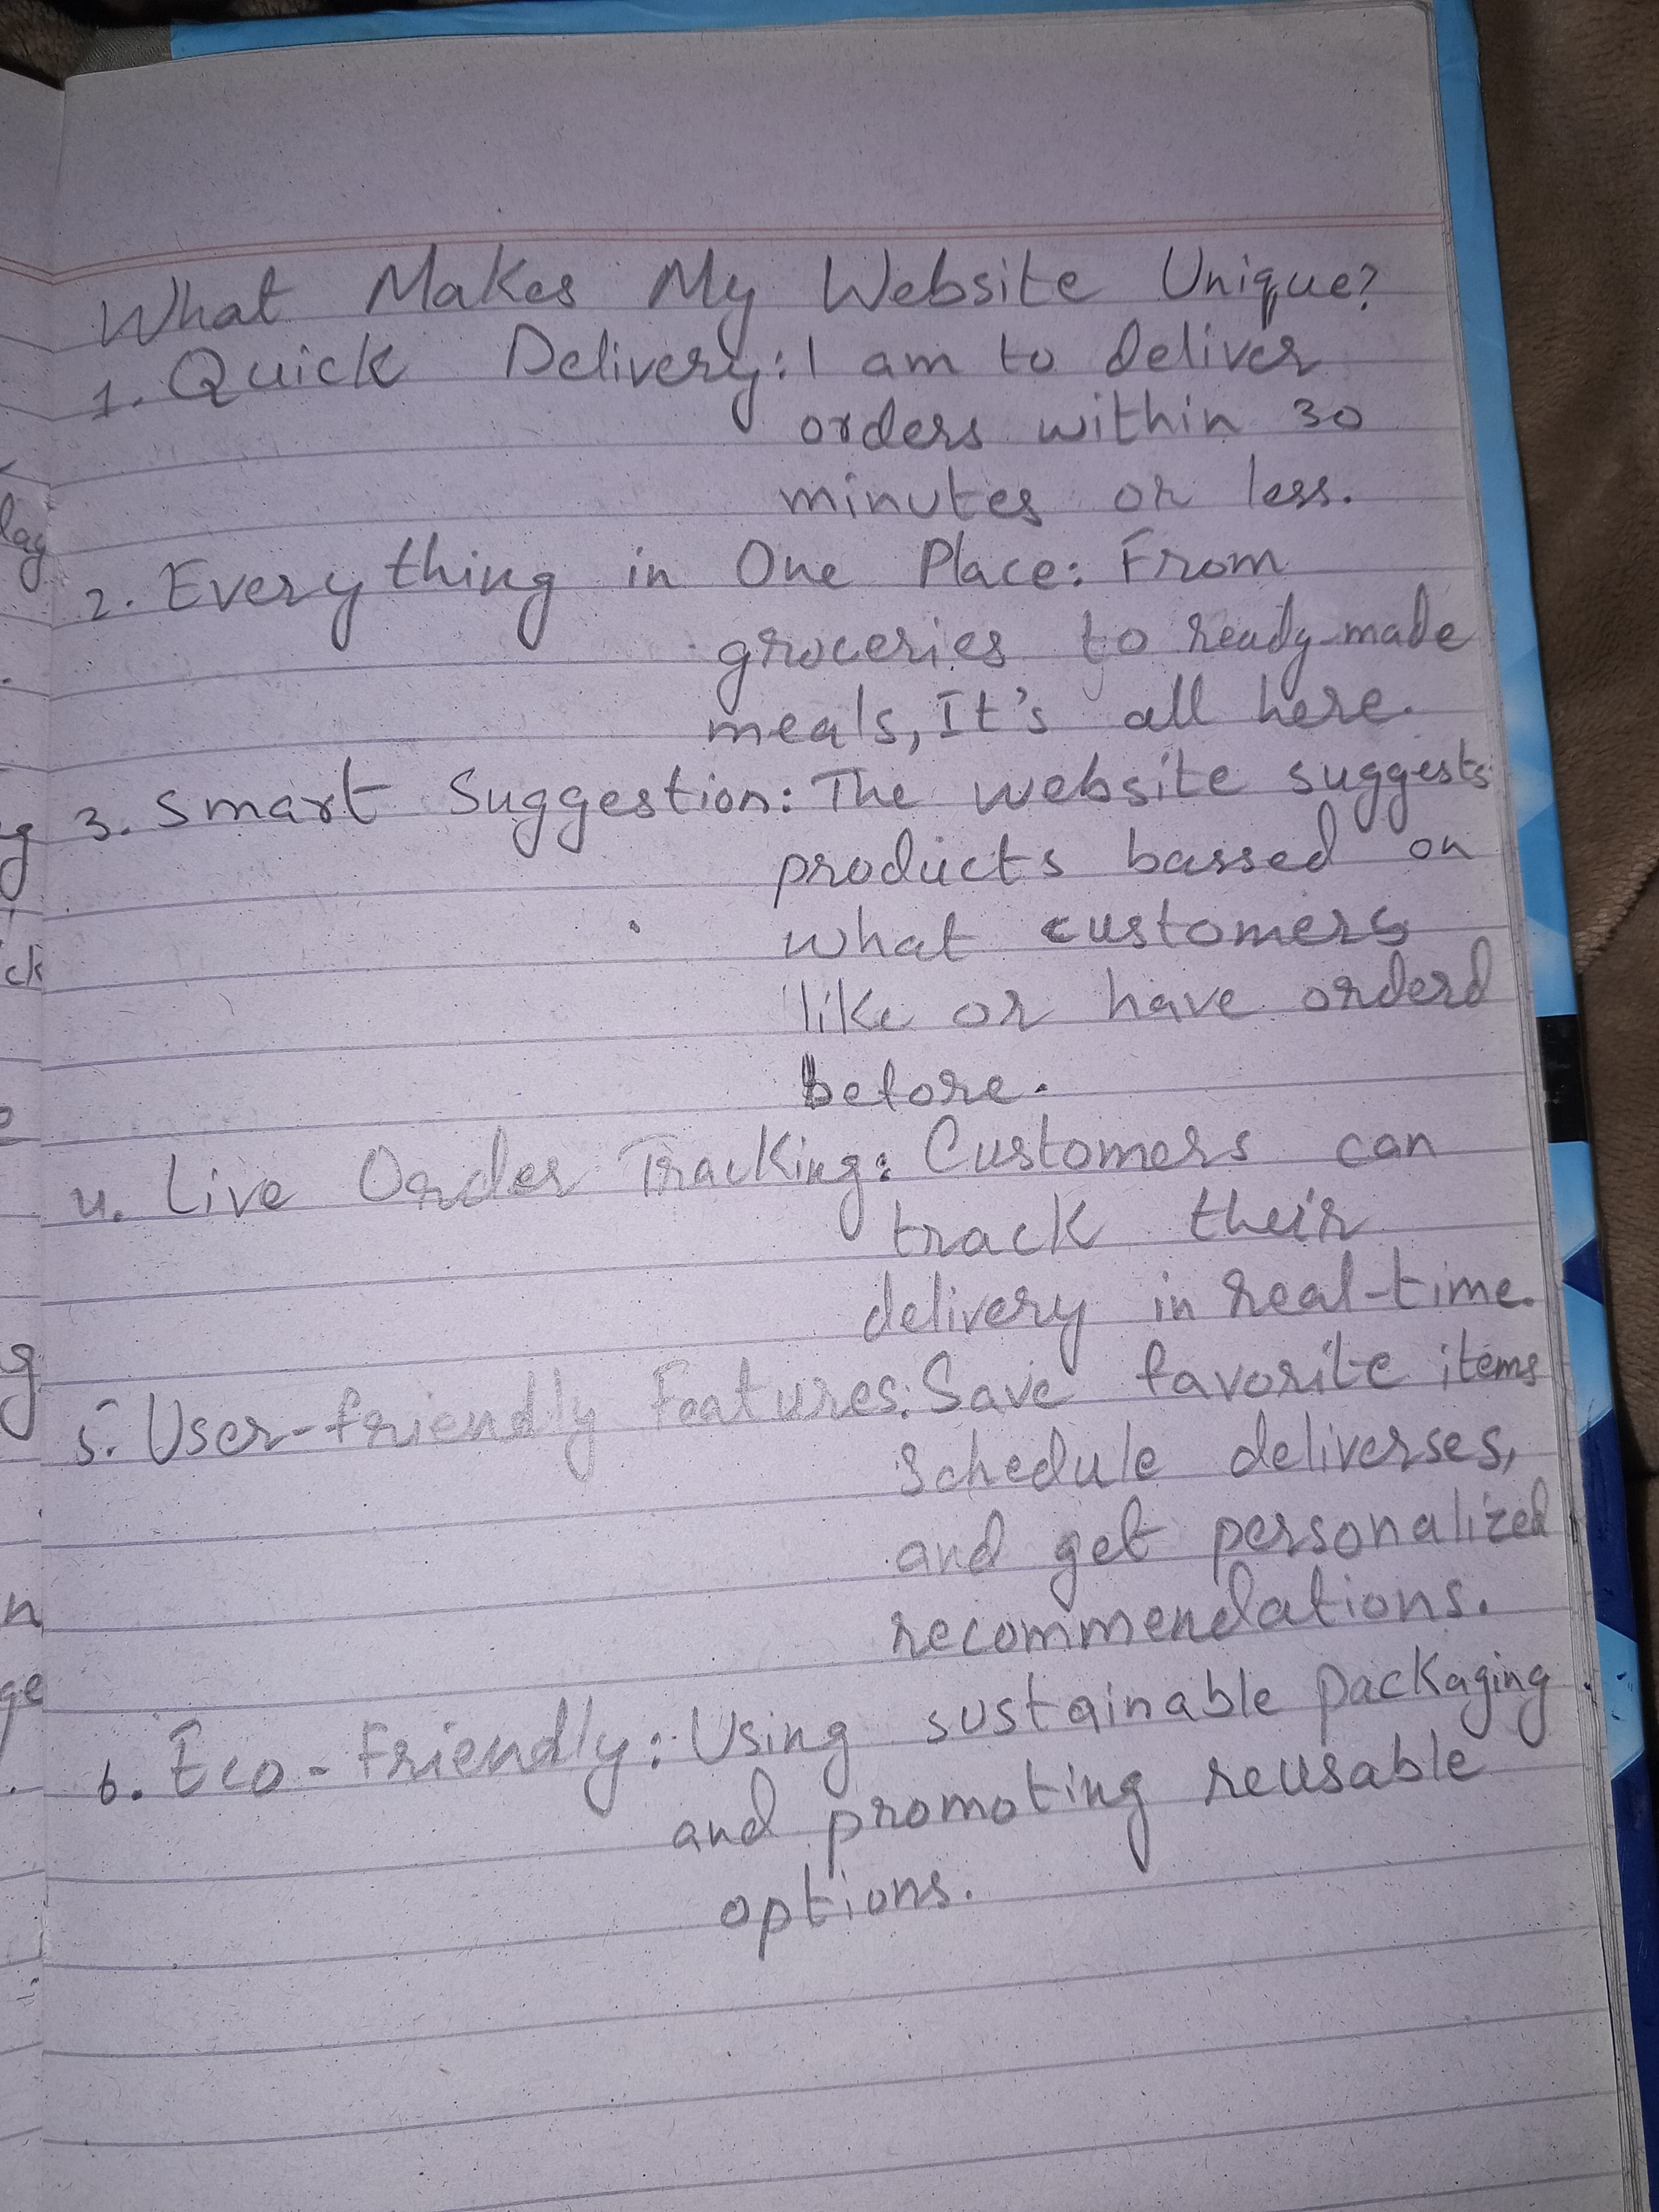 What Makes My Website Unique?
1. Quick Delivery: I am to deliver
orders within 30
minutes or less.
2. Everything in One Place: From
groceries to ready-made
meals, It's all here.
3. Smart Suggestion: The website suggests
products bassed on
what customers
like or have orderd
before.
4. Live Order Tracking: Customers can
track their
delivery in real-time.
5. User-friendly Features: Save favorite items
Schedule deliverses,
and get personalized
recommendations.
6. Eco-Friendly: Using sustainable packaging
and promoting reusable
options.